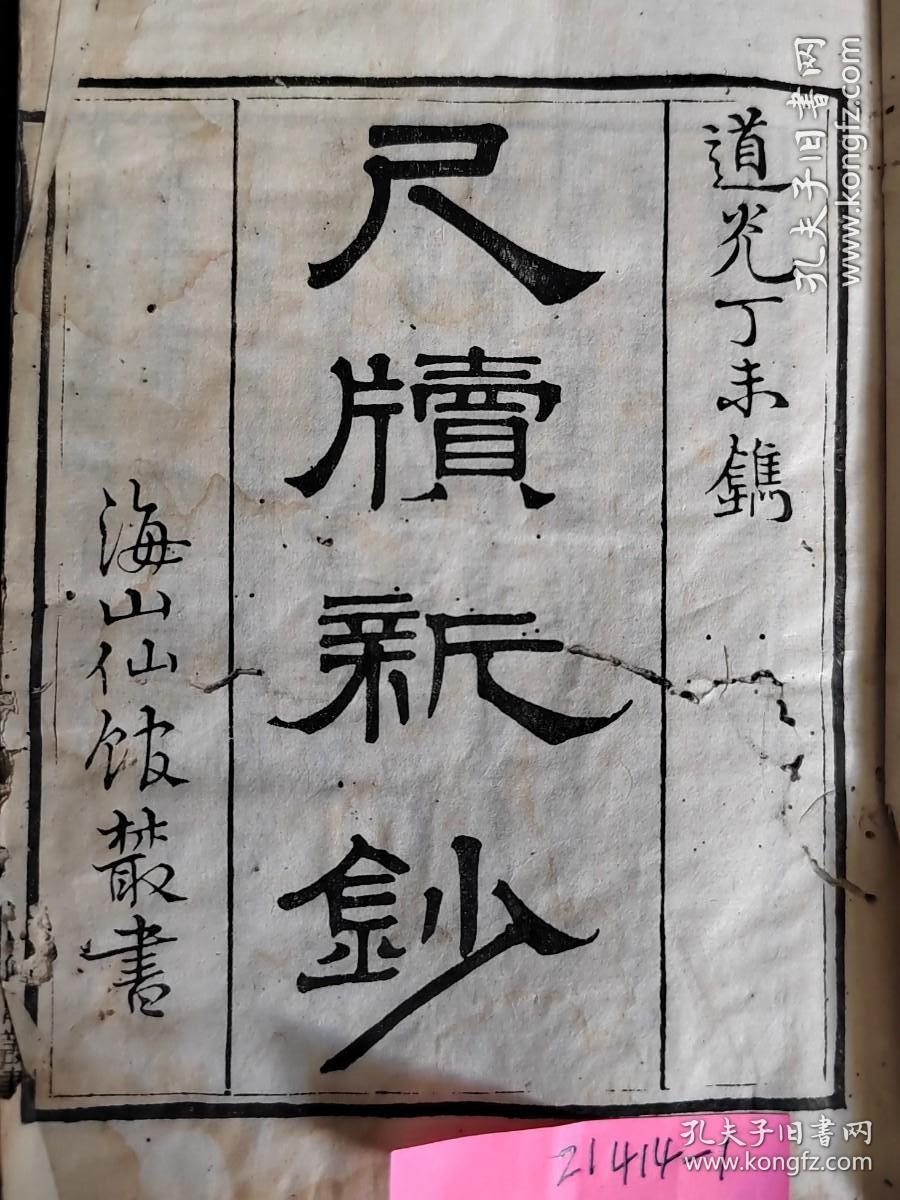 道光丁未鐫
尺牘新鈔
海山仙館叢書
21414-1
孔夫子旧书网
www.kongfz.com
孔夫子旧书网
www.kongfz.com